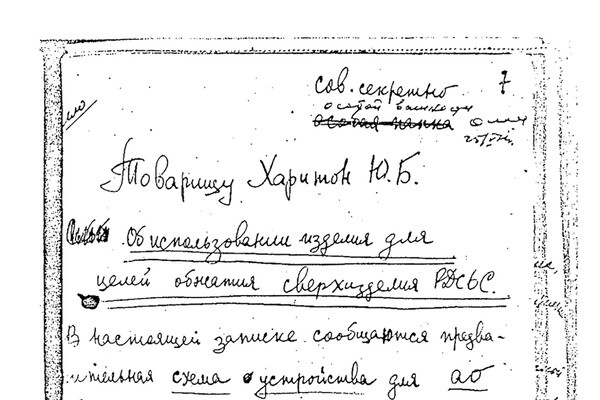 Сов. секретно 7
особой важности
особая папка
Товарищу Харитон Ю.Б.
Об использовании изделия для
целей обжатия сверхизделия РДС6С.
В настоящей записке сообщаются предва-
ительная схема устройства для АО